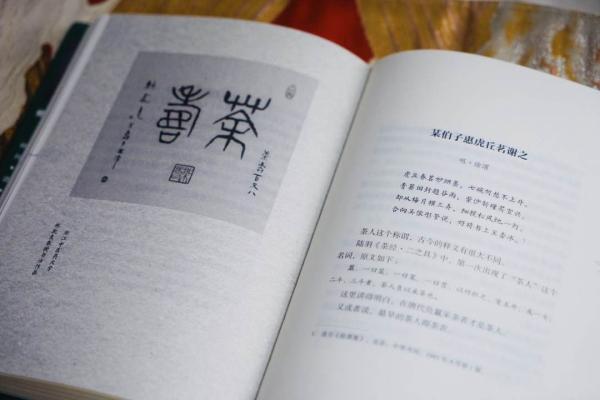 茶壽
茶壽百又八
某伯子惠虎丘茗谢之
明·徐渭
虎丘春茗妙烘蒸，七碗何愁不上升。
青箬旧封题谷雨，紫沙新罐买宜兴。
却从梅月横三弄，细搅松风灺一灯。
合向吴侬彤管说，好将书上玉壶冰。
茶人这个称谓，古今的释义有很大不同。
陆羽《茶经·二之具》中，第一次出现了“茶人”这个
名词，原文如下：
籯，一曰篮，一曰笼，一曰筥，以竹织之，受五升，或一斗、
二斗、三斗者，茶人负以采茶也。
这里讲得明白，在唐代负籯采茶者才是茶人。
又或者说，最早的茶人即茶农。